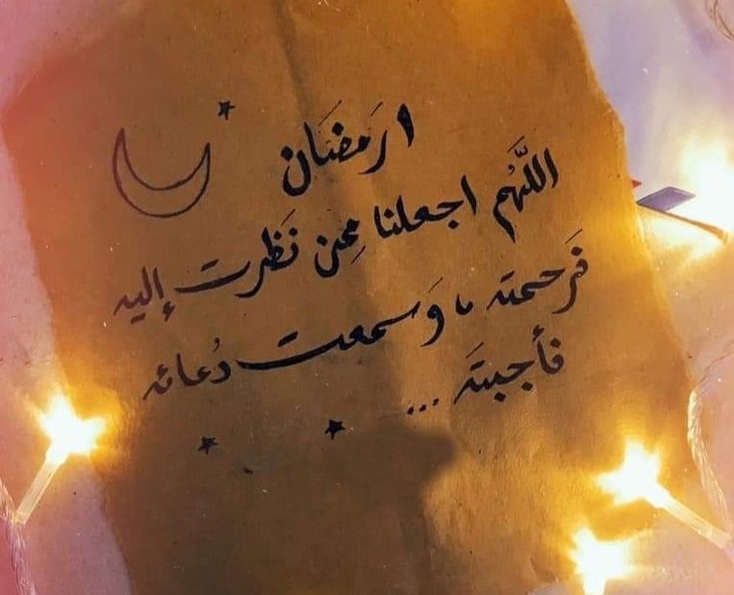 ١ رَمضَان
اللَّهُم اجعلنا مِمن نَظرت إليه
فَرحمته، وَسمعت دُعائه
فأجبتَه ...